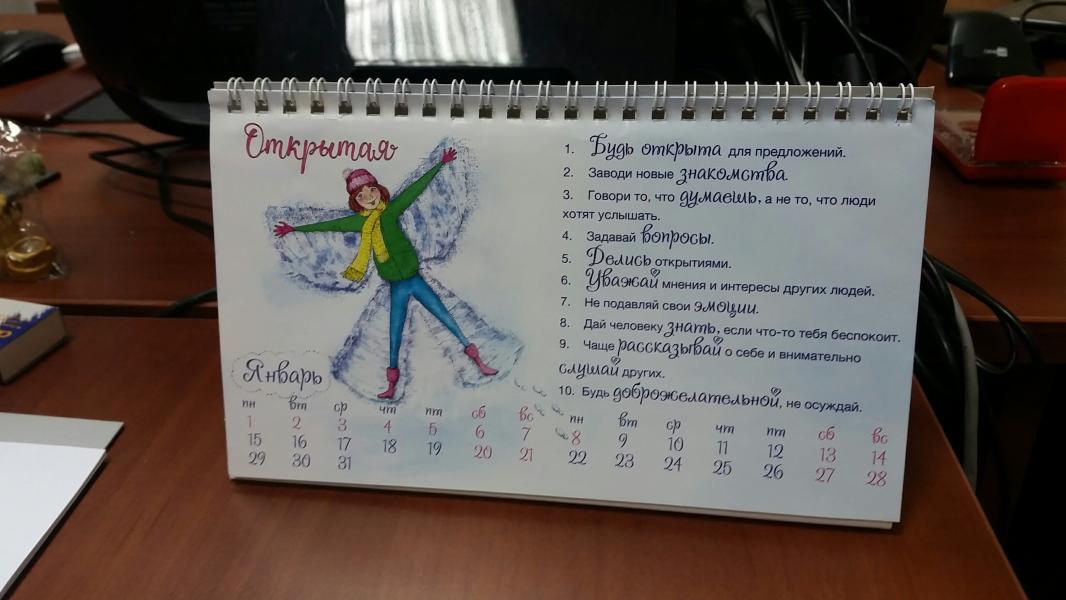 Открытая
1. Будь открыта для предложений.
2. Заводи новые знакомства.
3. Говори то, что думаешь, а не то, что люди
хотят услышать.
4. Задавай вопросы.
5. Делись открытиями.
6. Уважай мнения и интересы других людей.
7. Не подавляй свои эмоции.
8. Дай человеку знать, если что-то тебя беспокоит.
9. Чаще рассказывай о себе и внимательно
слушай других.
10. Будь доброжелательной, не осуждай.
Январь
пн вт ср чт пт сб вс пн вт ср чт пт сб вс
1 2 3 4 5 6 7 8 9 10 11 12 13 14
15 16 17 18 19 20 21 22 23 24 25 26 27 28
29 30 31